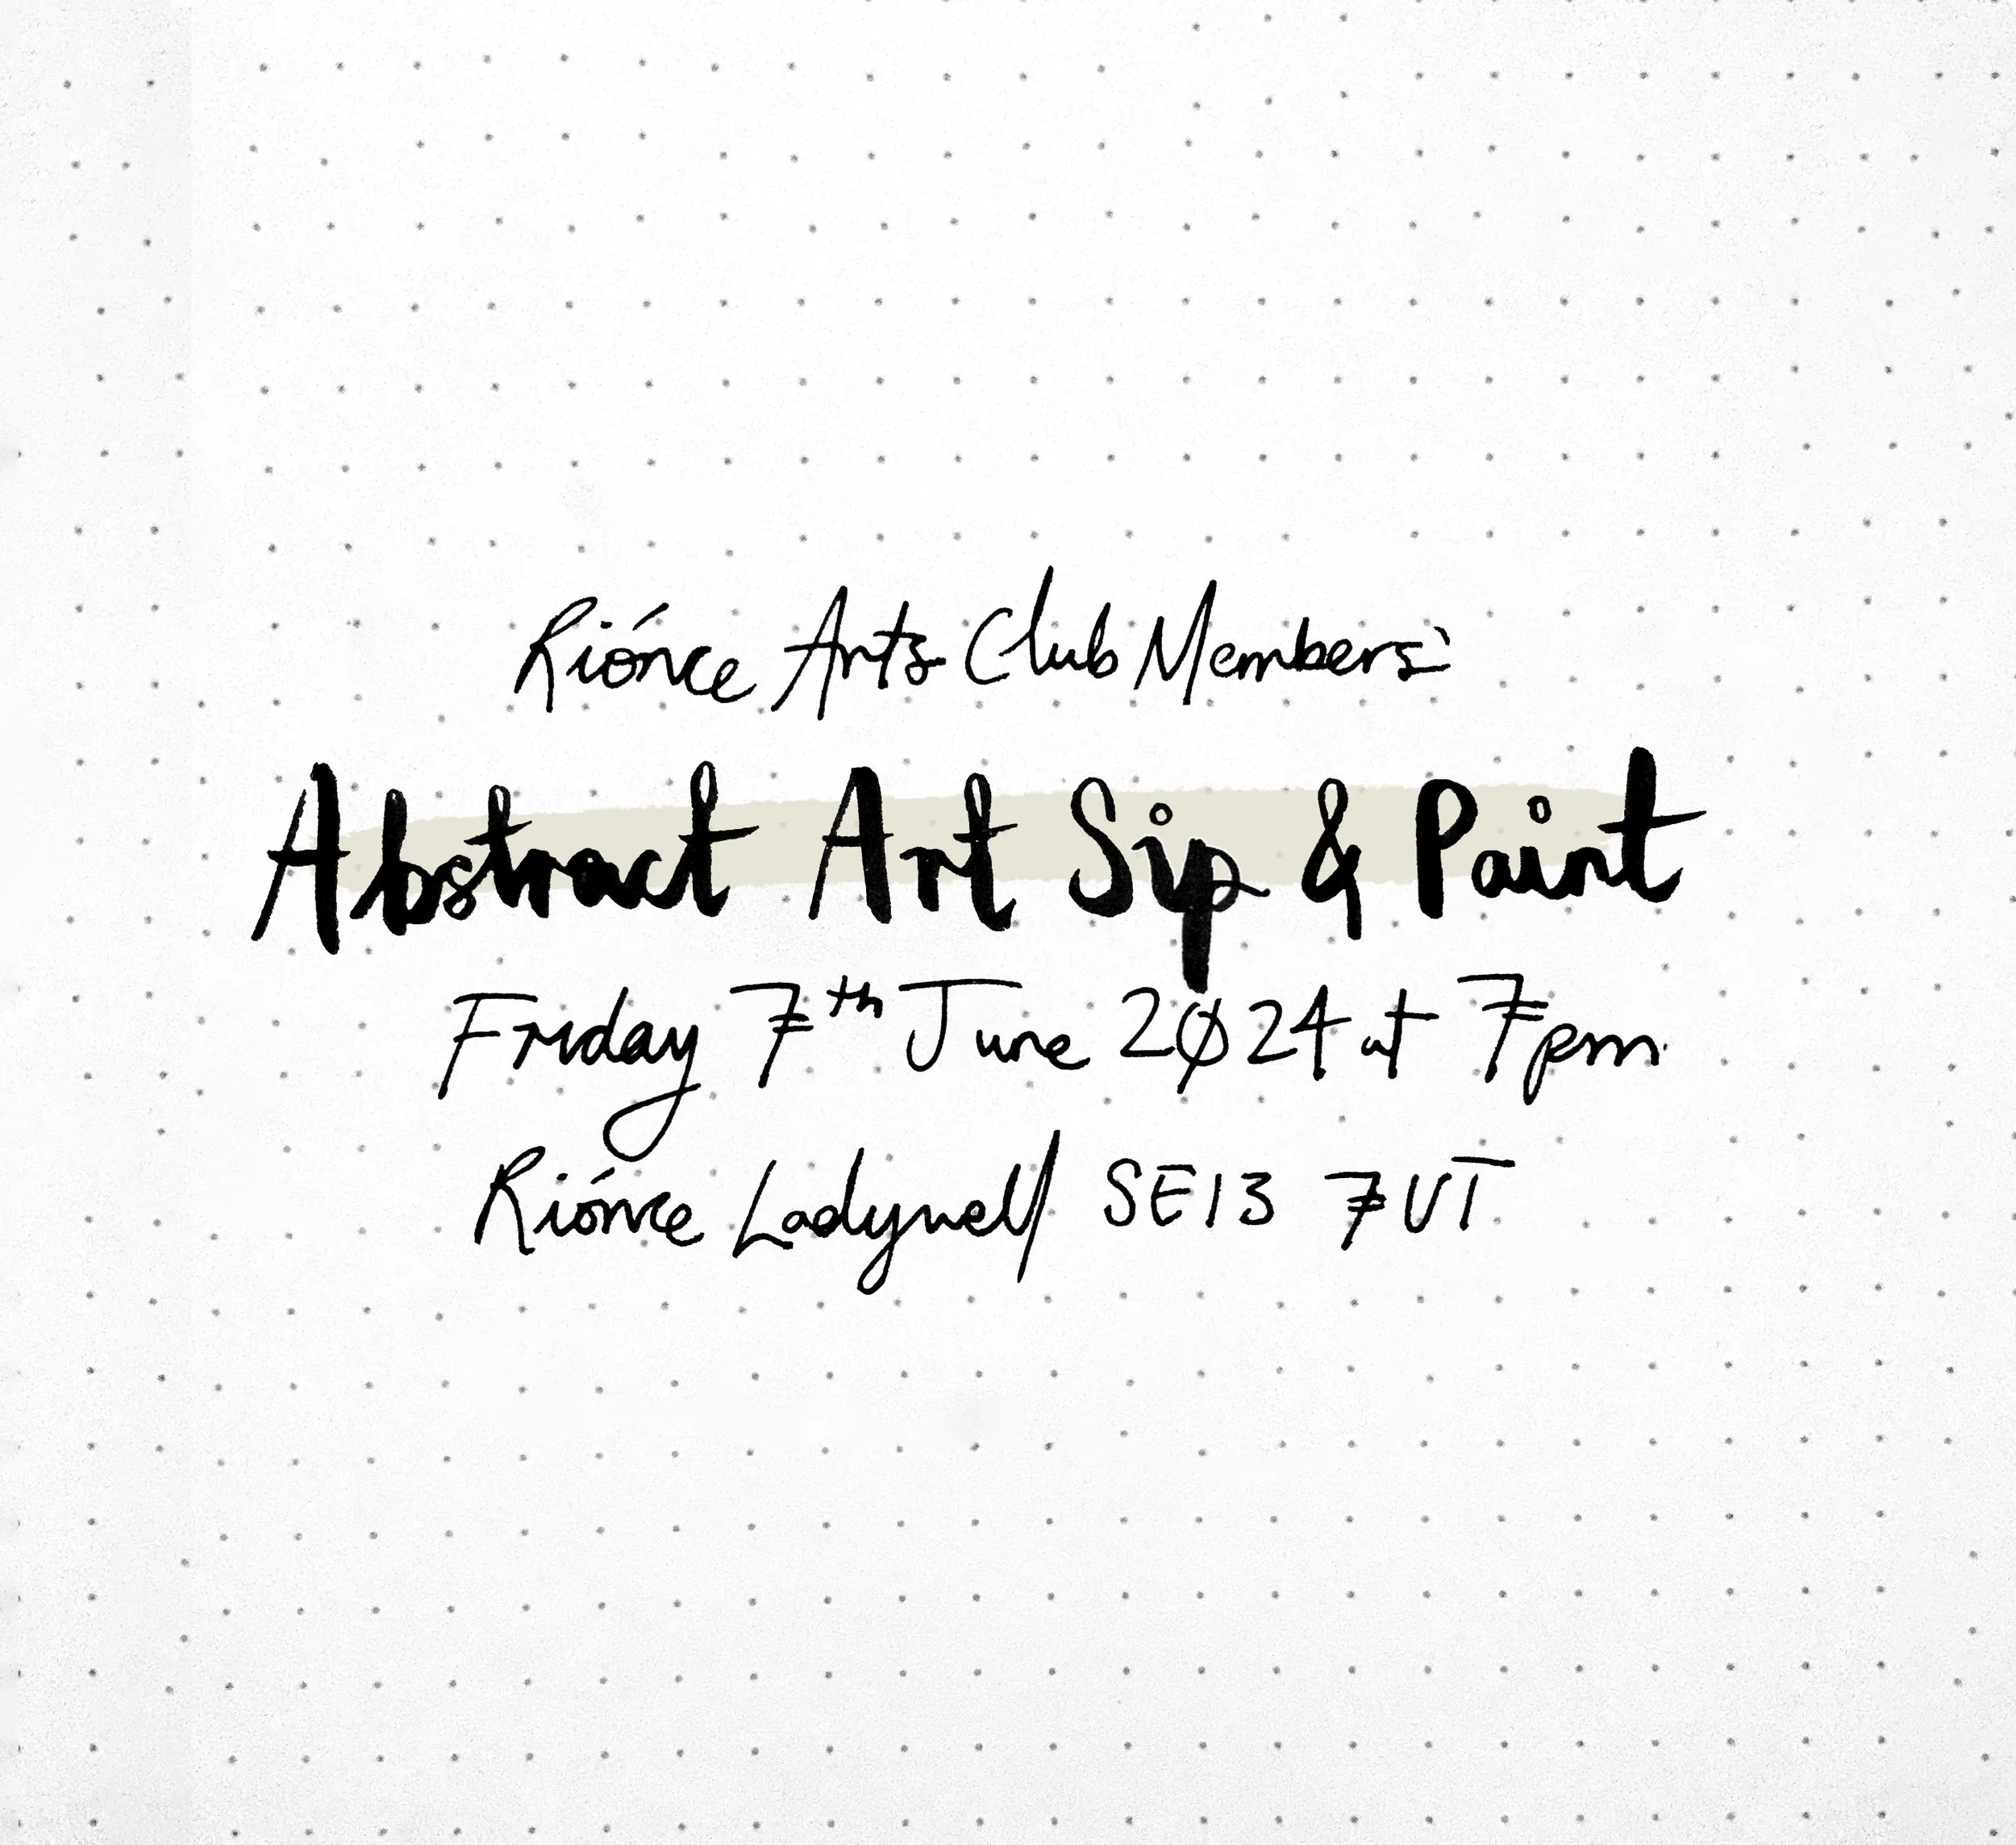 Riónce Arts Club Members'
Abstract Art Sip & Paint
Friday 7th June 2024 at 7pm
Riónce Ladywell SE13 7UT